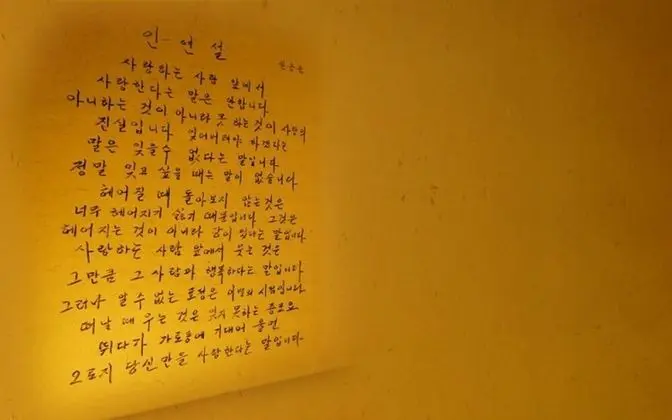 인연설
한용운
사랑하는 사람 앞에서
사랑한다는 말은 안합니다
아니하는 것이 아니라 못 하는 것이 사랑의
진실입니다 잊어버려야 하겠다는
말은 잊을수 없다는 말입니다
정말 잊고 싶을 때는 말이 없습니다
헤어질 때 돌아보지 않는것은
너무 헤어지기 싫기 때문입니다 그것은
헤어지는 것이 아니라 같이 있다는 말입니다
사랑하는 사람 앞에서 웃는 것은
그만큼 그 사람과 행복하다는 말입니다
그러나 알수 없는 표정은 이별의 시점입니다
떠날 때 우는 것은 잊지 못하는 증거요
뛰다가 가로등에 기대어 울면
오로지 당신만을 사랑한다는 말입니다